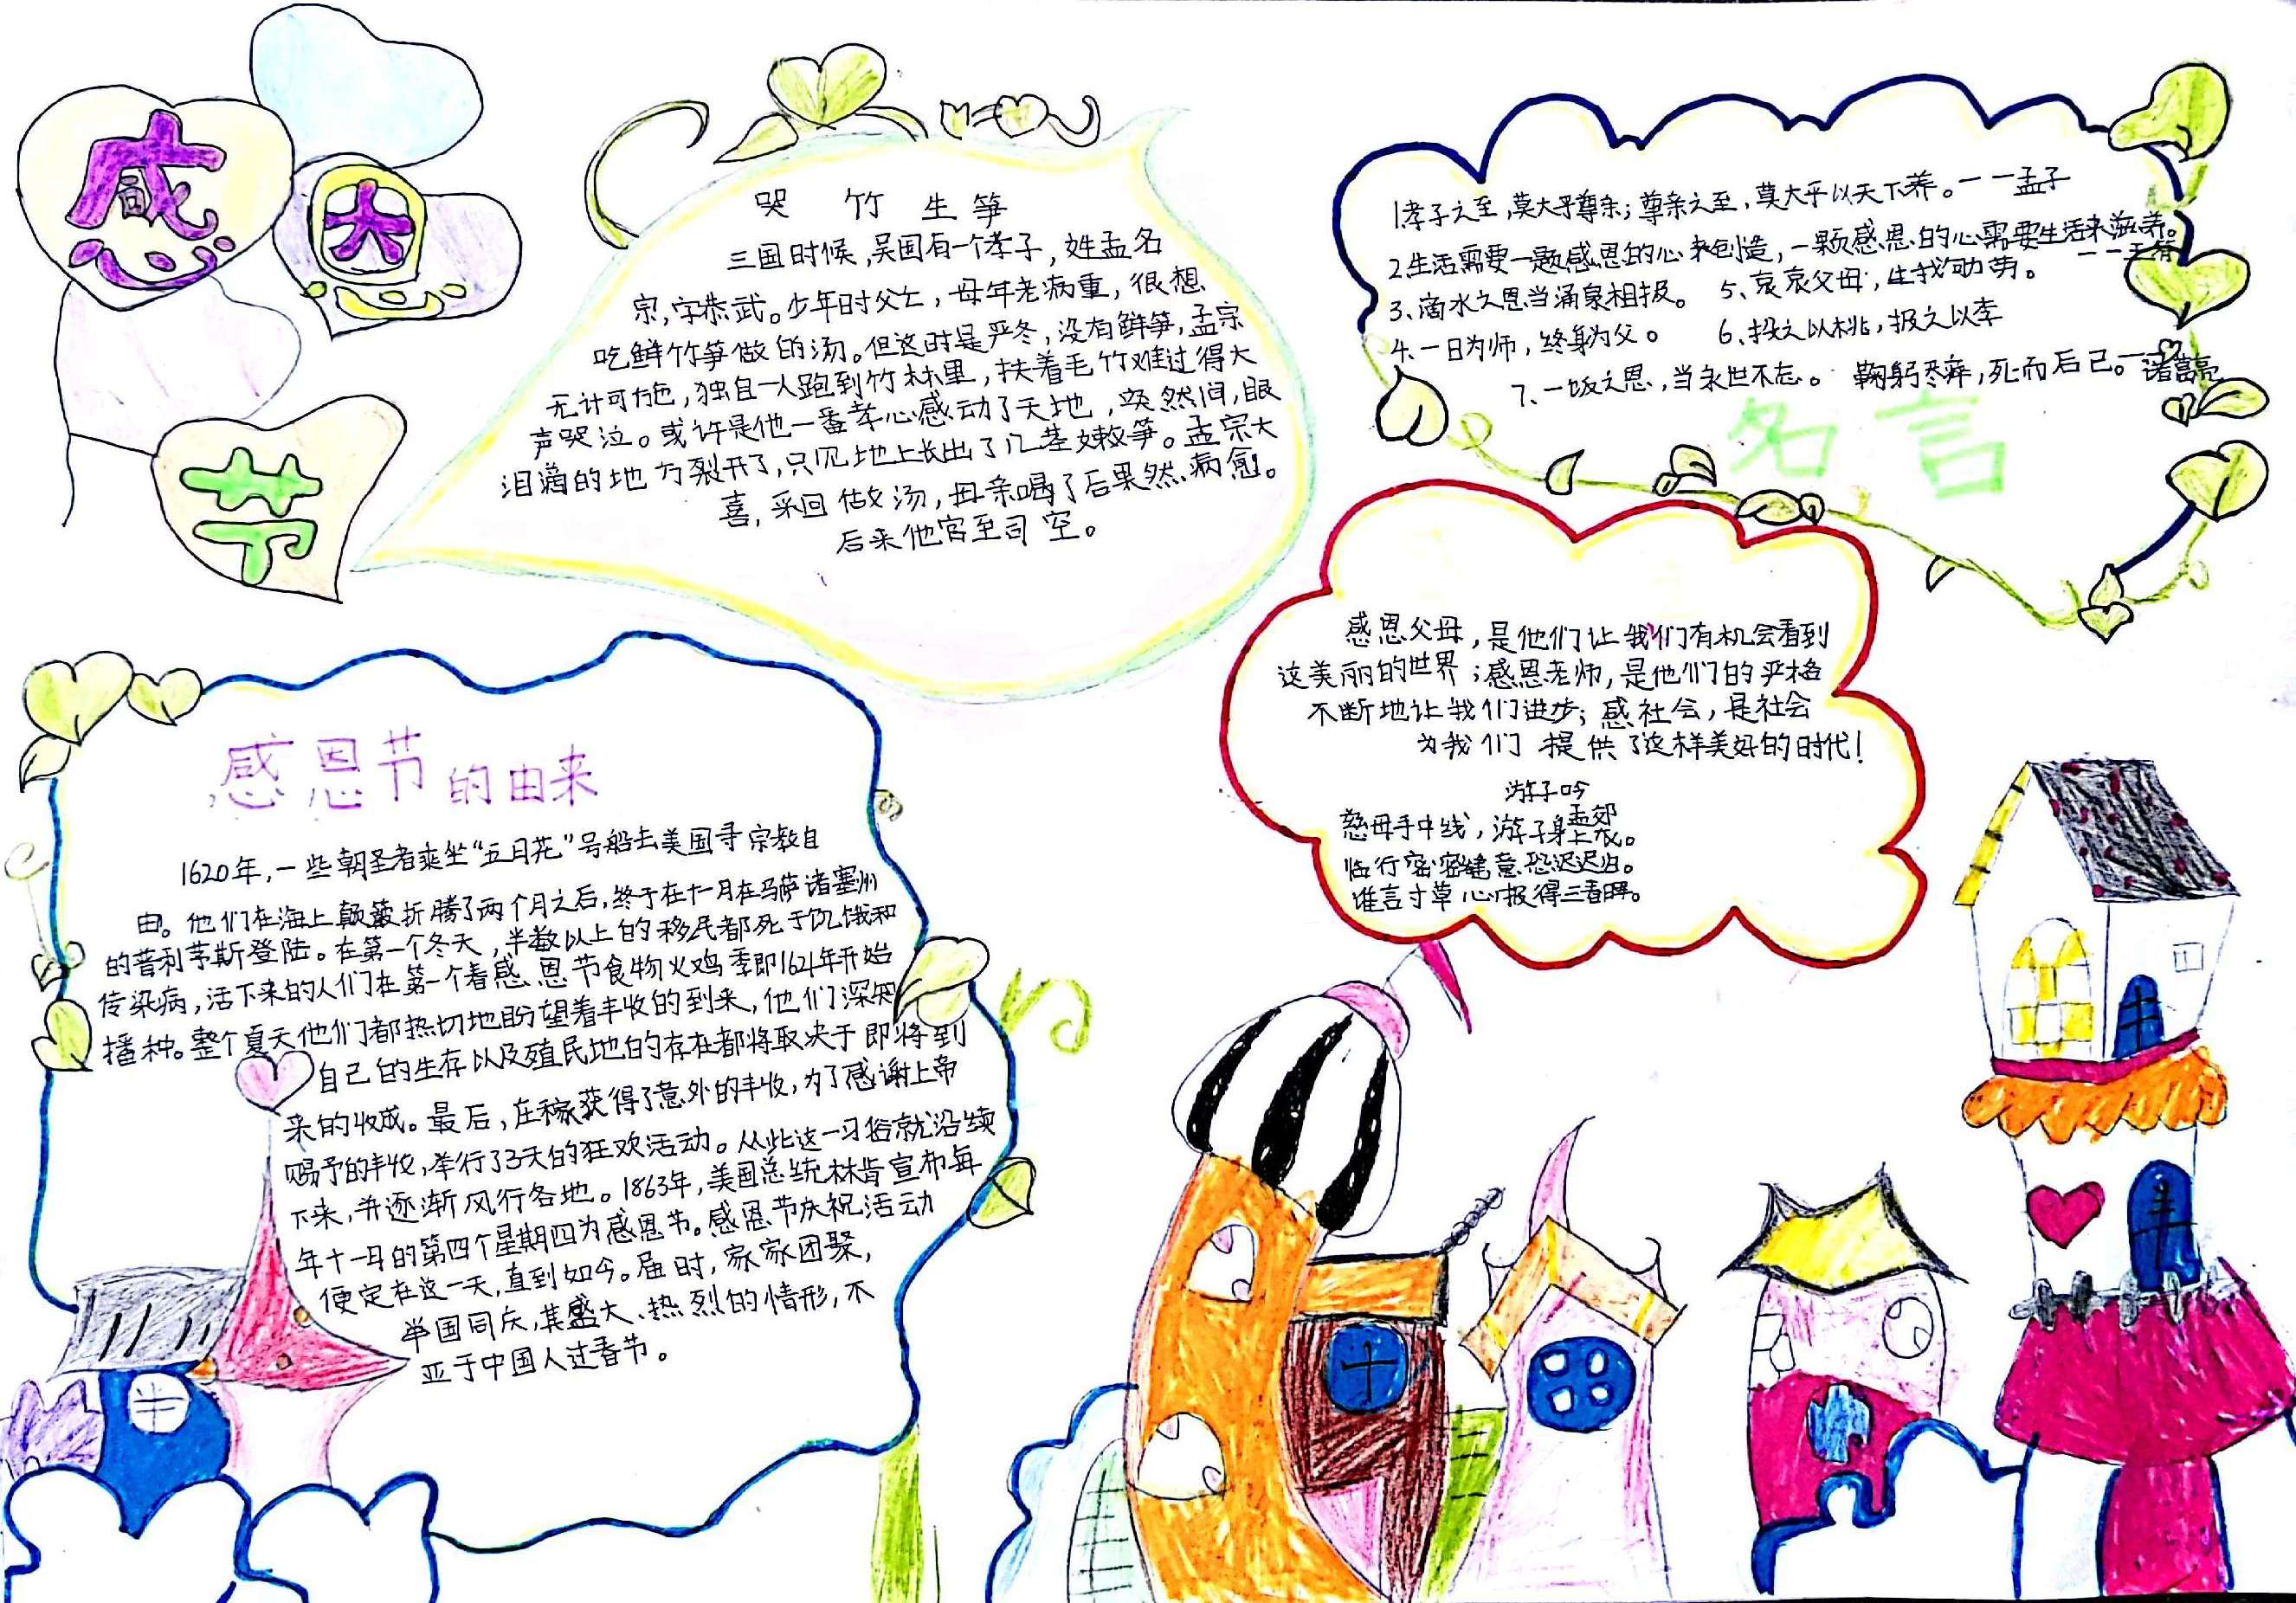 感恩节
哭竹生笋
三国时候,吴国有一个孝子,姓孟名
宗,字恭武。少年时父亡,母年老病重,很想
吃鲜竹笋做的汤。但这时是严冬,没有鲜笋,孟宗
无计可施,独自一人跑到竹林里,扶着毛竹难过得大
声哭泣。或许是他一番孝心感动了天地,突然间,眼
泪滴的地方裂开了,只见地上长出了几茎嫩笋。孟宗大
喜,采回做汤,母亲喝了后果然病愈。
后来他官至司空。
1.孝子之至,莫大乎尊亲;尊亲之至,莫大乎以天下养。——孟子
2生活需要一颗感恩的心来创造,一颗感恩的心需要生活来滋养。
——王符
3、滴水之恩当涌泉相报。 5、哀哀父母,生我劬劳。
4.一日为师,终身为父。 6、投之以桃,报之以李
7、一饭之恩,当永世不忘。 鞠躬尽瘁,死而后已。——诸葛亮
名言
感恩父母,是他们让我们有机会看到
这美丽的世界;感恩老师,是他们的严格
不断地让我们进步;感社会,是社会
为我们提供了这样美好的时代!
游子吟
孟郊
慈母手中线,游子身上衣。
临行密密缝意恐迟迟归。
谁言寸草心报得三春晖。
感恩节的由来
1620年,一些朝圣者乘坐“五月花”号船去美国寻宗教自
由。他们在海上颠簸折腾了两个月之后,终于在十一月在马萨诸塞州
的普利茅斯登陆。在第一个冬天,半数以上的移民都死于饥饿和
传染病,活下来的人们在第一个春感恩节食物火鸡季即1621年开始
播种。整个夏天他们都热切地盼望着丰收的到来,他们深知
自己的生存以及殖民地的存在都将取决于即将到
来的收成。最后,庄稼获得了意外的丰收,为了感谢上帝
赐予的丰收,举行了3天的狂欢活动。从此这一习俗就沿续
下来,并逐渐风行各地。1863年,美国总统林肯宣布每
年十一月的第四个星期四为感恩节。感恩节庆祝活动
便定在这一天,直到如今。届时,家家团聚,
举国同庆,其盛大、热烈的情形,不
亚于中国人过春节。